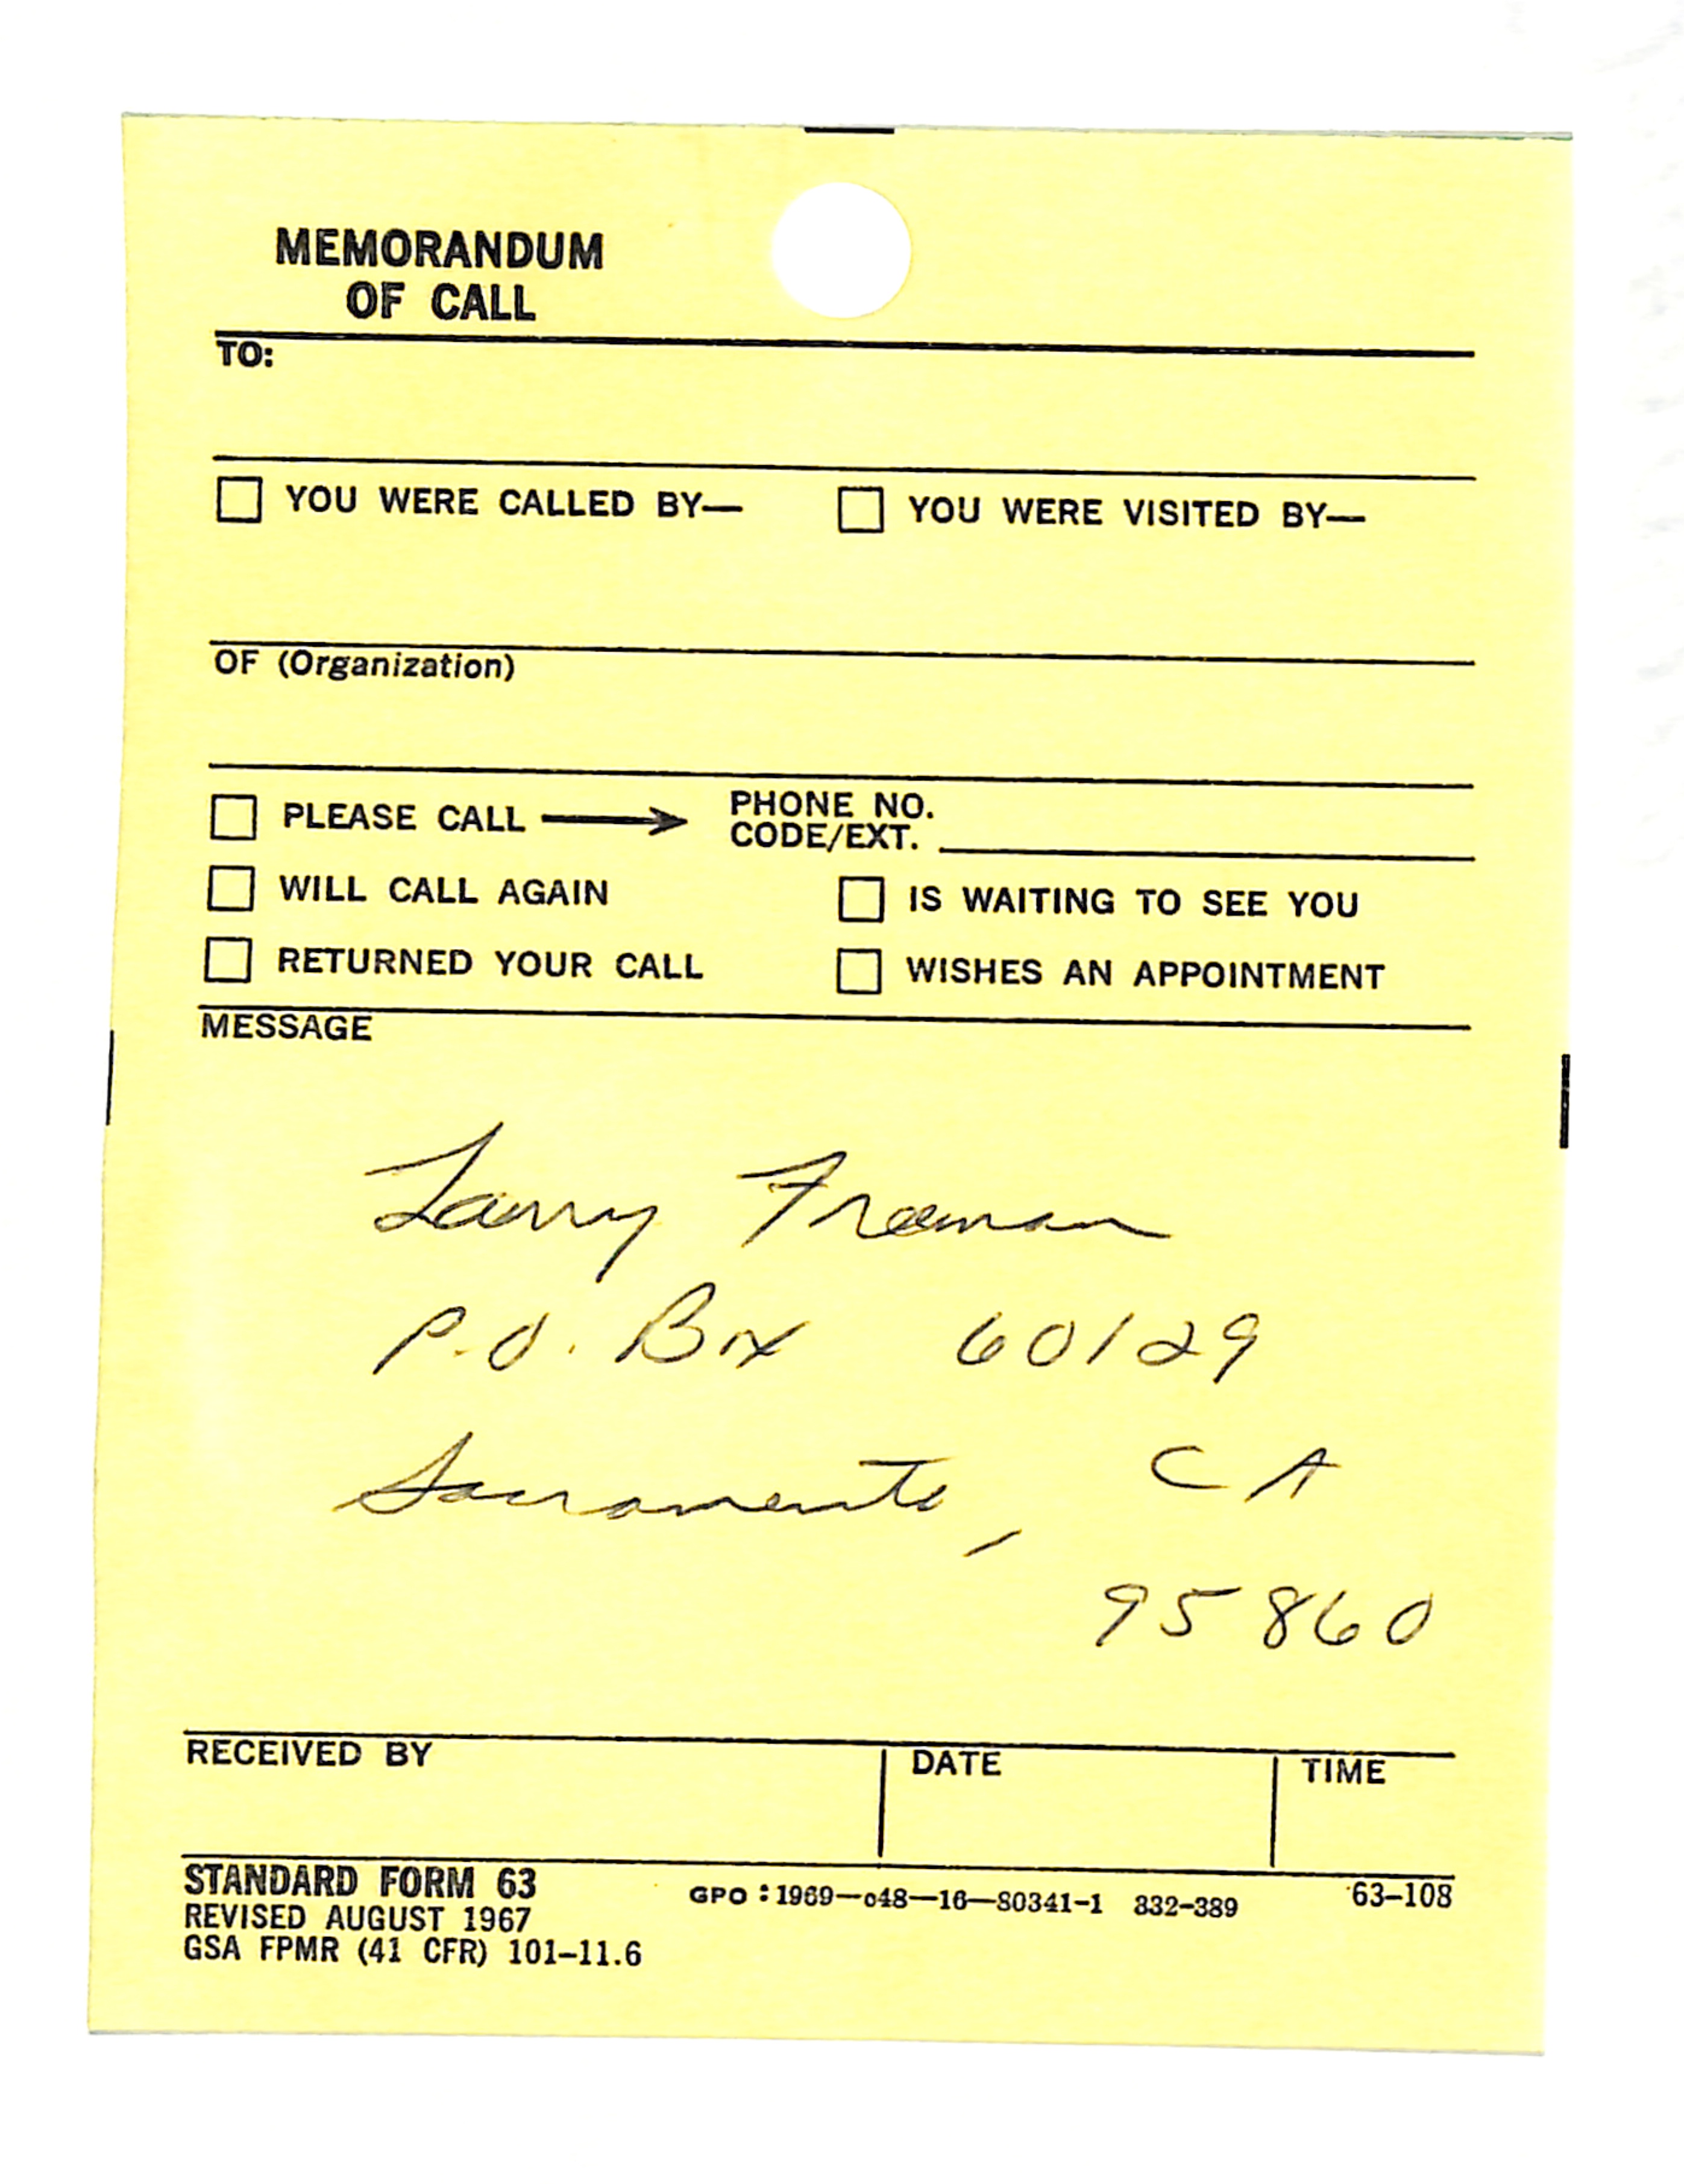 MEMORANDUM
OF CALL
TO:
YOU WERE CALLED BY— YOU WERE VISITED BY—
OF (Organization)
PLEASE CALL → PHONE NO.
CODE/EXT.
WILL CALL AGAIN IS WAITING TO SEE YOU
RETURNED YOUR CALL WISHES AN APPOINTMENT
MESSAGE
Larry Freeman
P.O. Box 60129
Sacramento, CA
95860
RECEIVED BY DATE TIME
STANDARD FORM 63 GPO : 1969—o48—16—80341-1 332-389 63-108
REVISED AUGUST 1967
GSA FPMR (41 CFR) 101-11.6